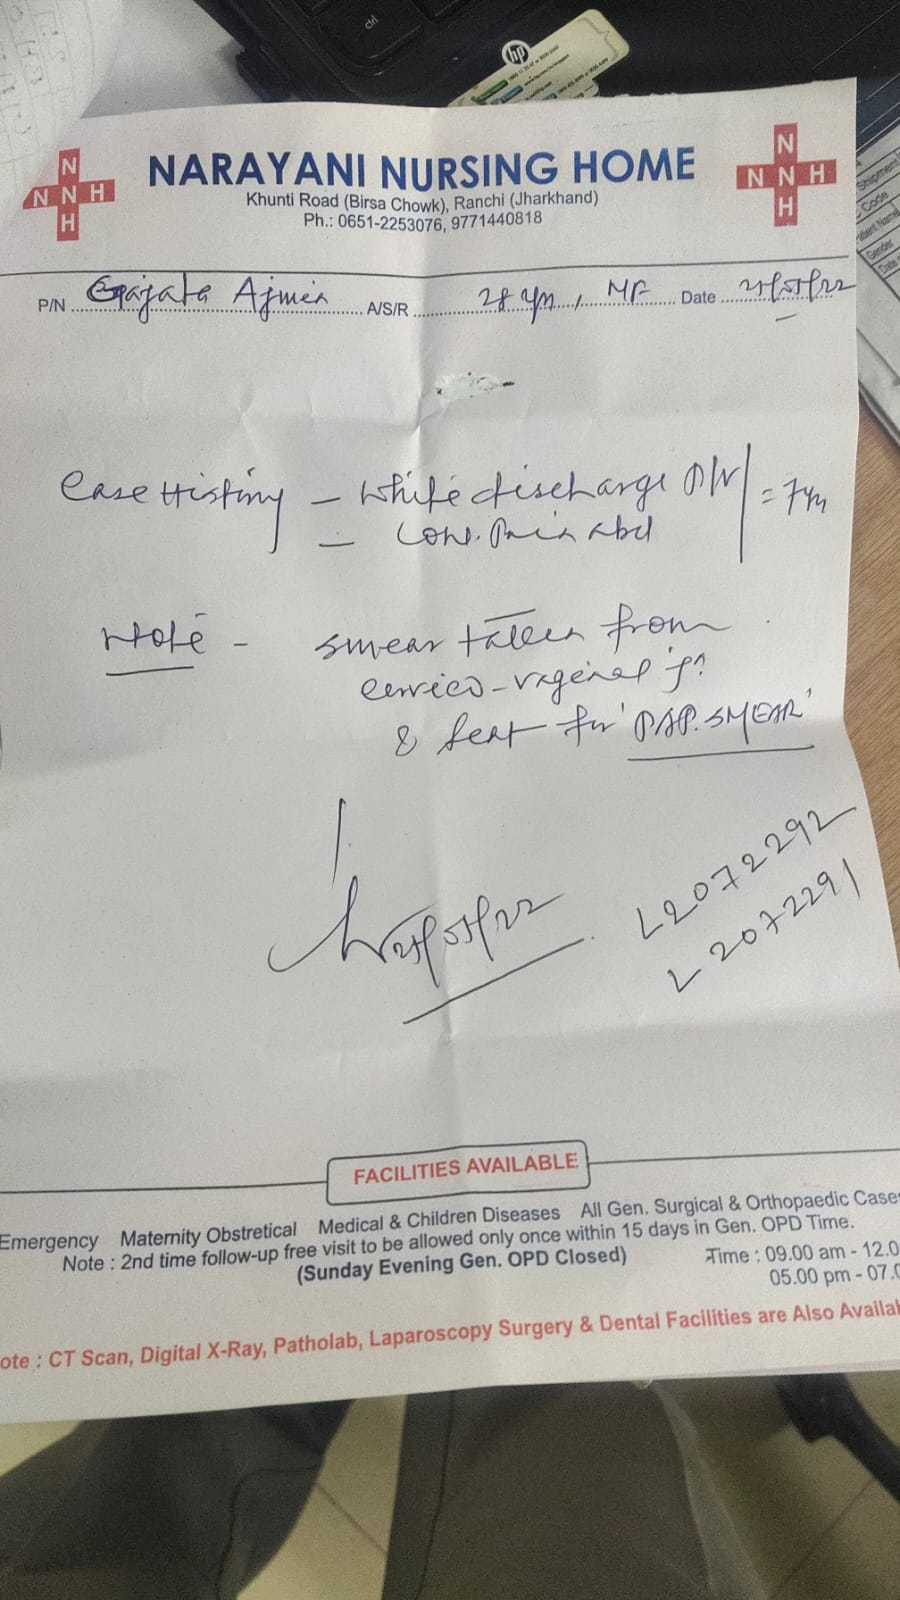 ctrl
hp
N
NNH
H
NARAYANI NURSING HOME
Khunti Road (Birsa Chowk), Ranchi (Jharkhand)
Ph.: 0651-2253076, 9771440818
N
NNH
H
Shipment
Code
Patient Name
Gender
P/N Ajmer A/S/R 28 yrs, MF Date
Case History - White discharge P/V = 7 yrs
- Pain Abd
Note - smear taken from
cervico-vaginal
& sent for 'PAP. SMEAR'
L2072292
L2072291
FACILITIES AVAILABLE
Emergency Maternity Obstretical Medical & Children Diseases All Gen. Surgical & Orthopaedic Case
Note : 2nd time follow-up free visit to be allowed only once within 15 days in Gen. OPD Time.
(Sunday Evening Gen. OPD Closed) Time : 09.00 am - 12.0
05.00 pm - 07.0
ote : CT Scan, Digital X-Ray, Patholab, Laparoscopy Surgery & Dental Facilities are Also Availa